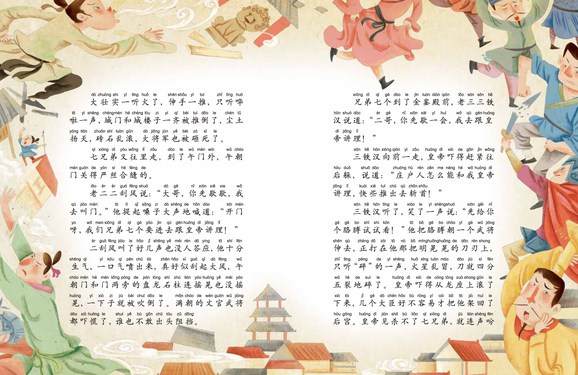 大壮实一听火了，伸手一推，只听哗
啦一声，城门和城楼子一齐被推倒了，尘土
扬天，砖石乱滚，大将军也被砸死了。
七兄弟又往里走，到了午门外，午朝
门关得严丝合缝的。
老二二刮风说：“大哥，你先歇歇，我
去叫门。”他提起嗓子大声地嚷道：“开门
呀，我们兄弟七个要进去跟皇帝讲理！”
二刮风叫了好几声也没人答应，他十分
生气，一口气喷出来，真好似刮起大风，午
朝门和门两旁的盘龙石柱连摇晃也没摇
晃，一下子就被吹倒了，满朝的文官武将
都吓慌了，谁也不敢出头阻挡。
兄弟七个到了金銮殿前，老三三铁
汉说道：“二哥，你先歇一会，我去跟皇
帝讲理！”
三铁汉向前一走，皇帝吓得赶紧往
后躲，说道：“庄户人怎么能和我皇帝
讲理，快些推出去斩首！”
三铁汉听了，笑了一声说：“先给你
个胳膊试试看！”他把胳膊朝一个武将
伸去，正打在他那把明晃晃的刀刃上，
只听“砰”的一声，火星乱冒，刀就四分
五裂地碎了。皇帝吓得从龙座上滚了
下来，几个大臣好不容易才把他架回了
后宫。皇帝见杀不了七兄弟，就连声吩